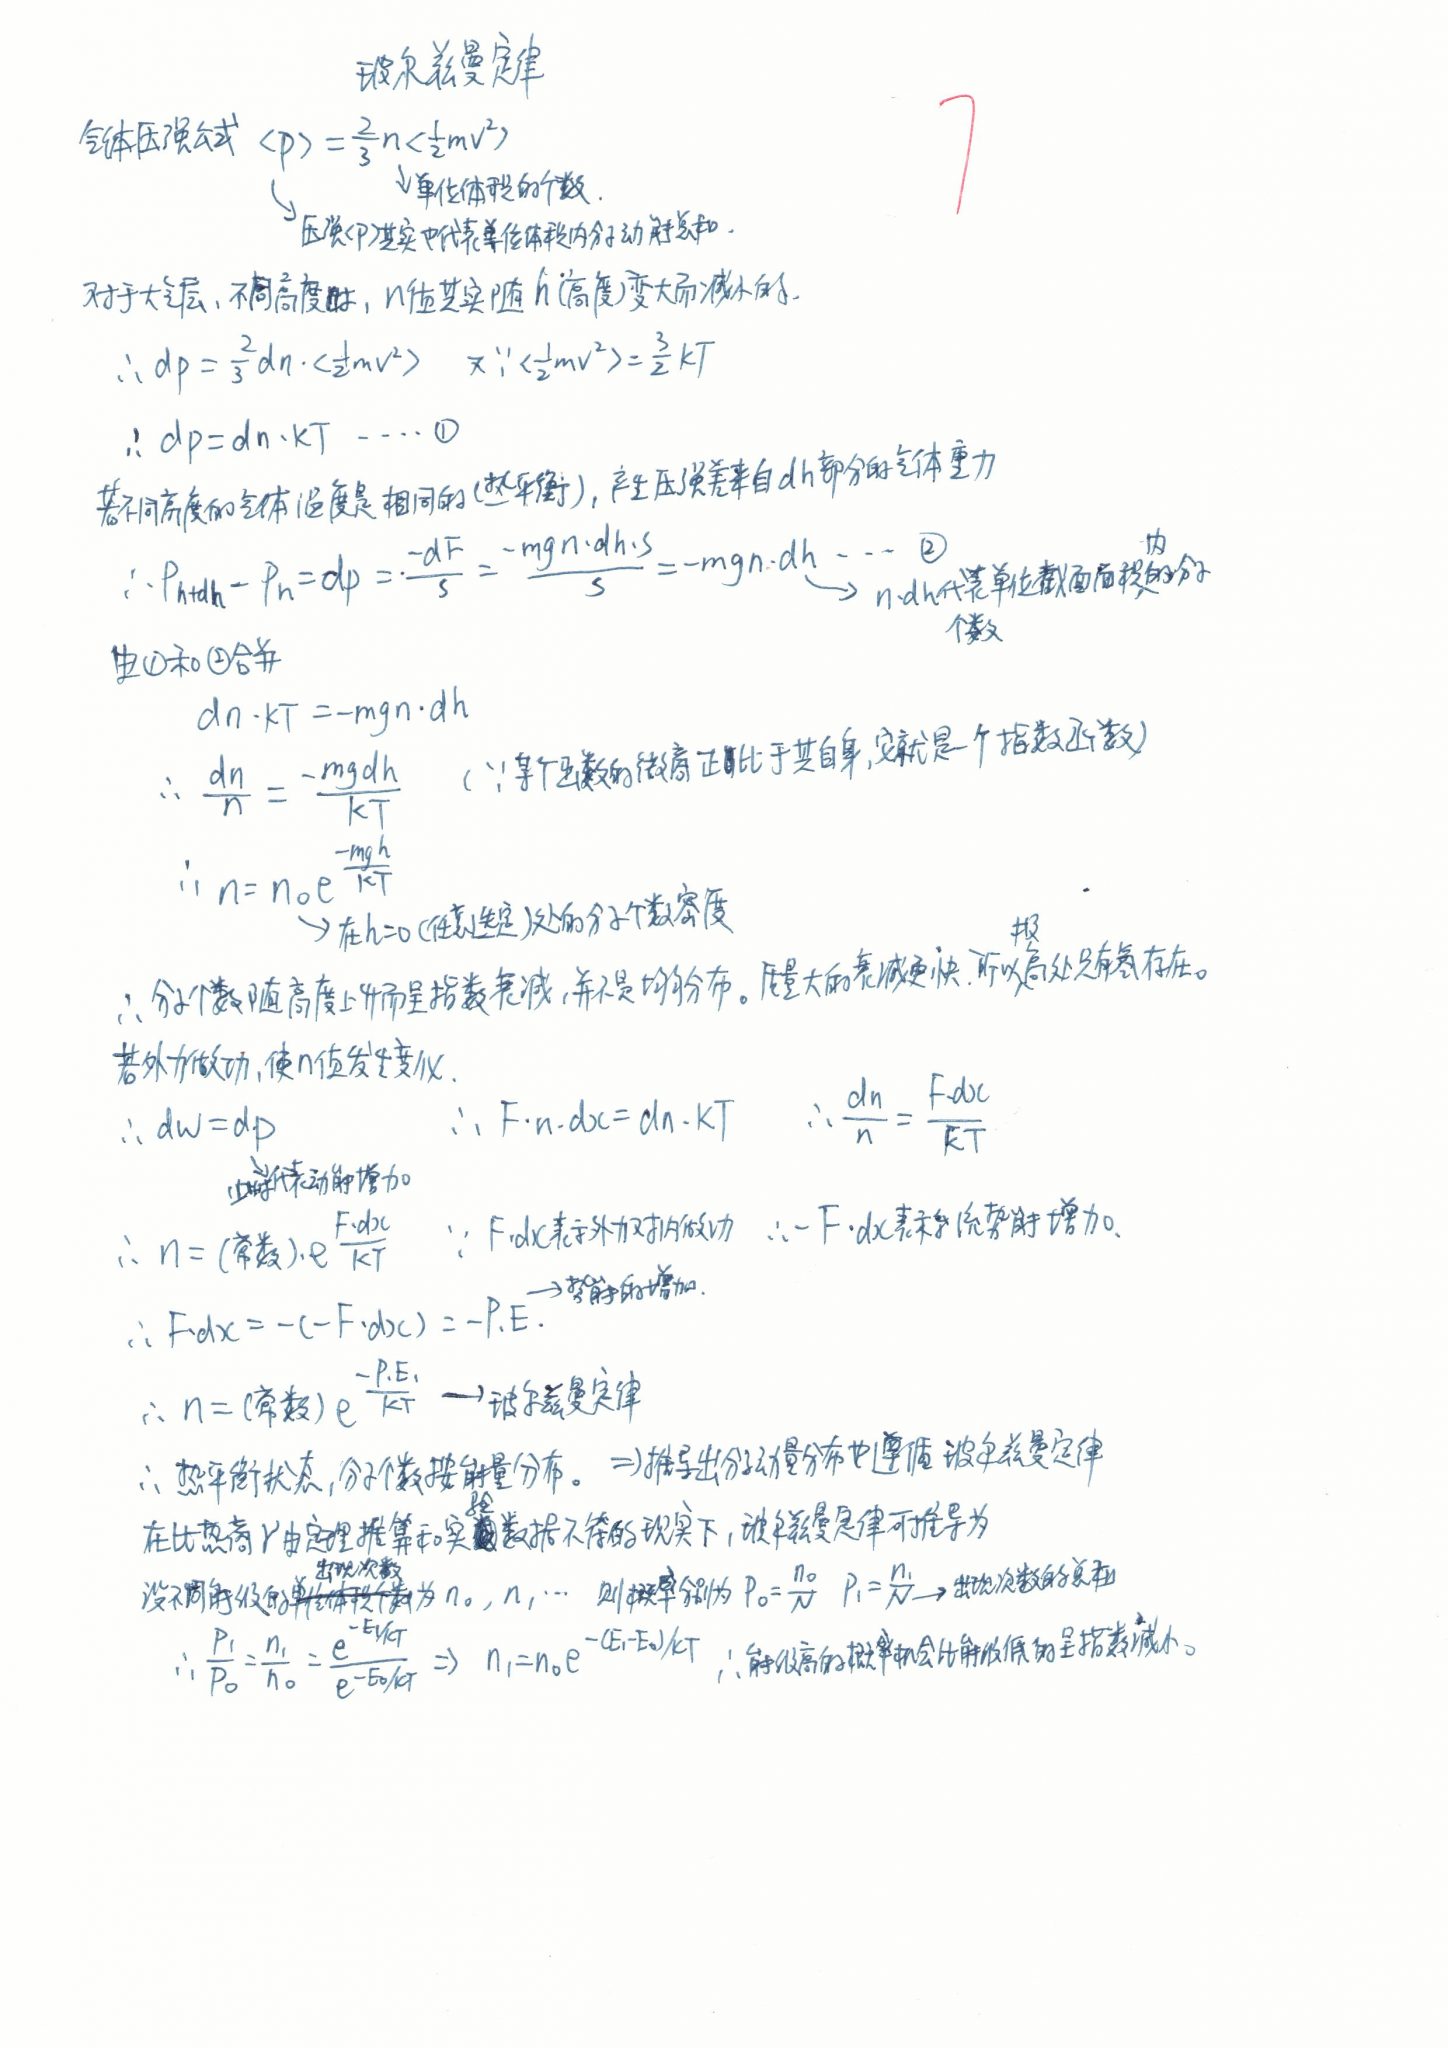 玻尔兹曼定律
7
气体压强公式 <p> = 2/3 n<1/2 mv²>
↓单位体积的个数.
压强<p>其实也代表单位体积内分子动能总和.
对于大气层,不同高度时,n值其实随h(高度)变大而减小的.
∴ dp = 2/3 dn·<1/2 mv²> 又∵<1/2 mv²> = 3/2 kT
∴ dp = dn·kT ---- ①
若不同高度的气体温度是相同的(热平衡),产生压强差来自dh部分的气体重力
∴ P_{h+dh} - P_h = dp = -dF/s = -mgn·dh·s/s = -mgn·dh --- ②
→ n·dh代表单位截面面积内的分子
个数
由①和②合并
dn·kT = -mgn·dh
∴ dn/n = -mgdh/kT (∵某个函数的微商正比于其自身,它就是一个指数函数)
∴ n = n₀e^{-mgh/kT}
→在h=0(任意选定)处的分子个数密度
∴ 分子个数随高度上升而呈指数衰减,并不是均匀分布。质量大的衰减更快.所以高处只有氢存在。
若外力做功,使n值发生变化.
∴ dw = dp ∴ F·n·dx = dn·kT ∴ dn/n = F·dx/kT
代表动能增加。
∴ n = (常数)·e^{F·dx/kT} ∵ F·dx表示外力对内做功 ∴ -F·dx表示 势能增加.
→势能的增加.
∴ F·dx = -(-F·dx) = -P.E.
∴ n = (常数) e^{-P.E./kT} → 玻尔兹曼定律
∴ 热平衡状态,分子个数按能量分布。 ⇒推导出分子动量分布也遵循 玻尔兹曼定律
在比热商γ由定理推算和实验数据不符的现实下,玻尔兹曼定律可推导为
设不同能级的出现次数为n₀,n₁… 则概率分别为 P₀ = n₀/N P₁ = n₁/N → 出现次数的总和
∴ P₁/P₀ = n₁/n₀ = e^{-E₁/kT}/e^{-E₀/kT} ⇒ n₁ = n₀e^{-(E₁-E₀)/kT} ∴能级高的概率机会比能级低的呈指数减小。